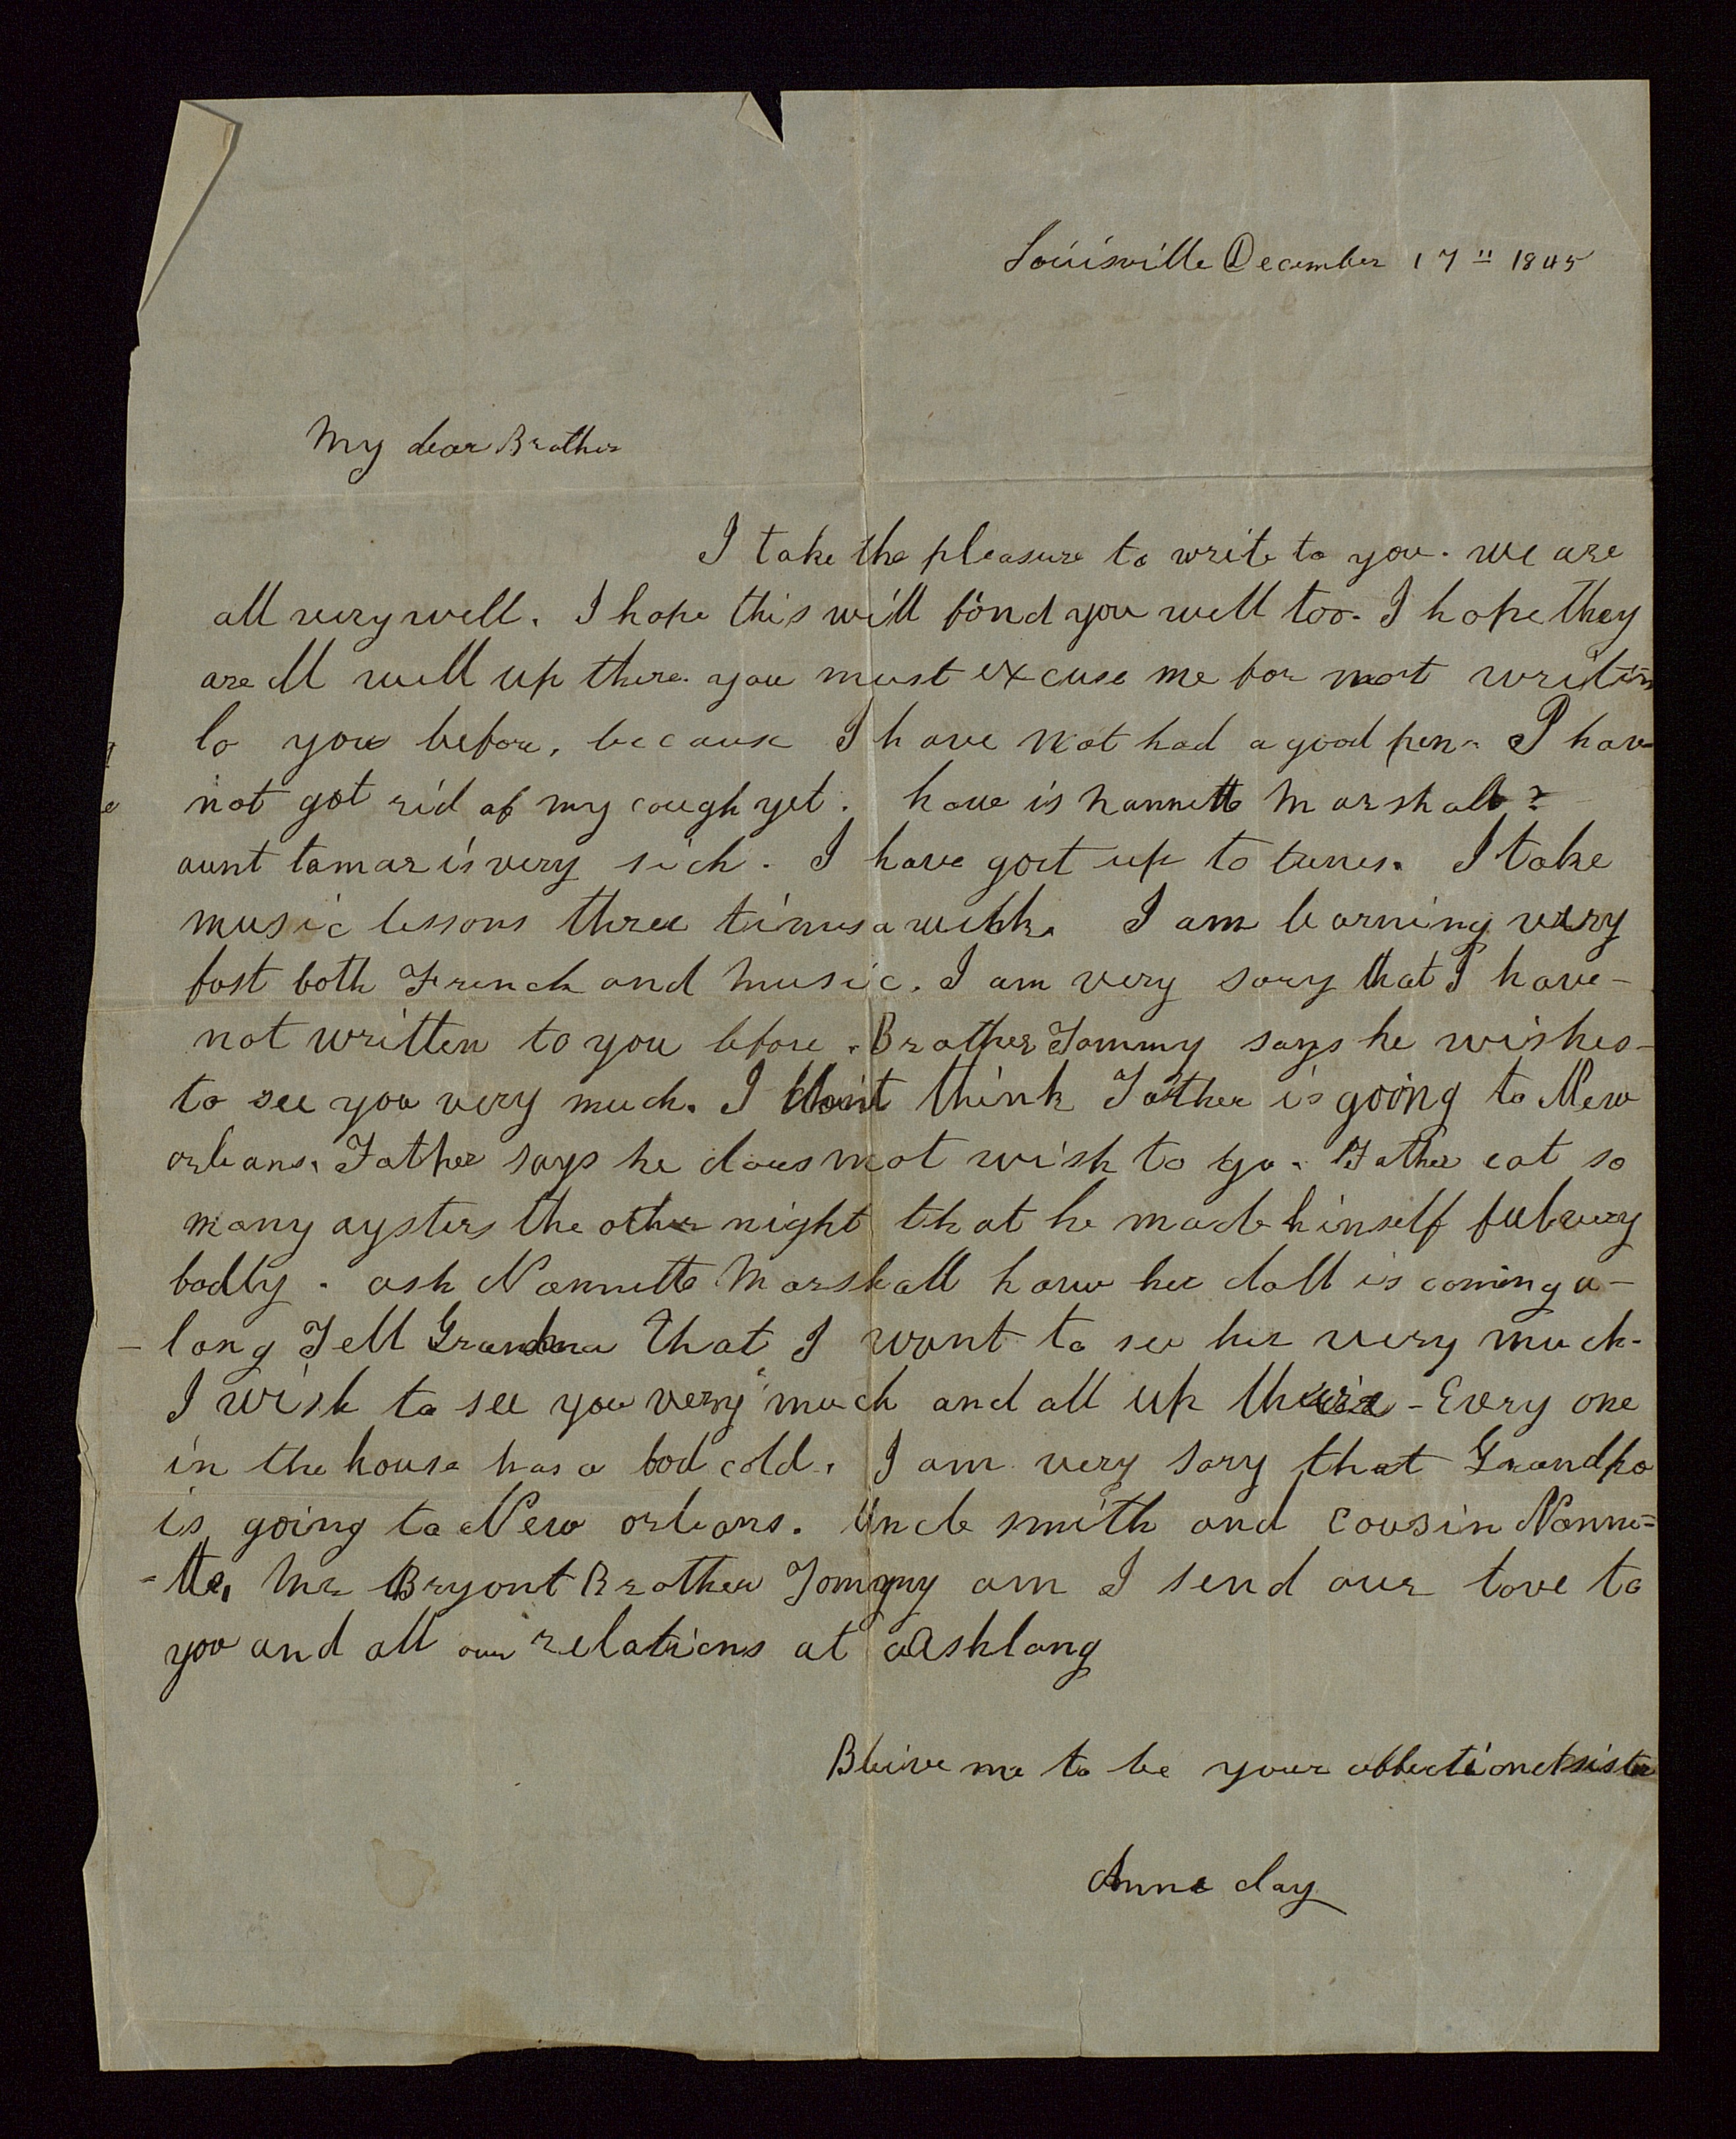 Louisville December 17" 1845
My dear Brother
I take the pleasure to write to you. we are
all very well. I hope this will find you well too. I hope they
are all well up there. you must excuse me for not writing
to you before, because I have not had a good pen. I have
not got rid of my cough yet. how is Nannette Marshall?
aunt tamar is very sick. I have got up to tunes. I take
music lessons three times a week. I am learning very
fast both French and Music. I am very sory that I have-
not written to you before. Brother Tommy says he wishes-
to see you very much. I don't think Father is going to New
orleans. Father says he does not wish to go. Father eat so
many oysters the other night that he made himself feel very
badly. ask Nannette Marshall how her doll is coming a-
-long Tell Grandma that I want to see her very much-
I wish to see you very much and all up there - Every one
in the house has a bad cold. I am very sory that Grandpa
is going to New orleans. Uncle smith and cousin Nanne=
-tte, Mr Bryant Brother Tommy am I send our love to
you and all our relations at Ashland
Bleive me to be your affectionet sister
Anne clay